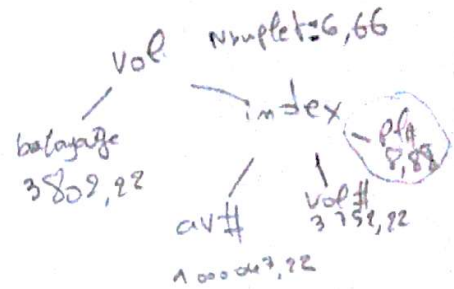 Vol Nnuplet=6,66
balayage
3802,22
index
pf#
8,88
av#
100047,22
vol#
3752,22